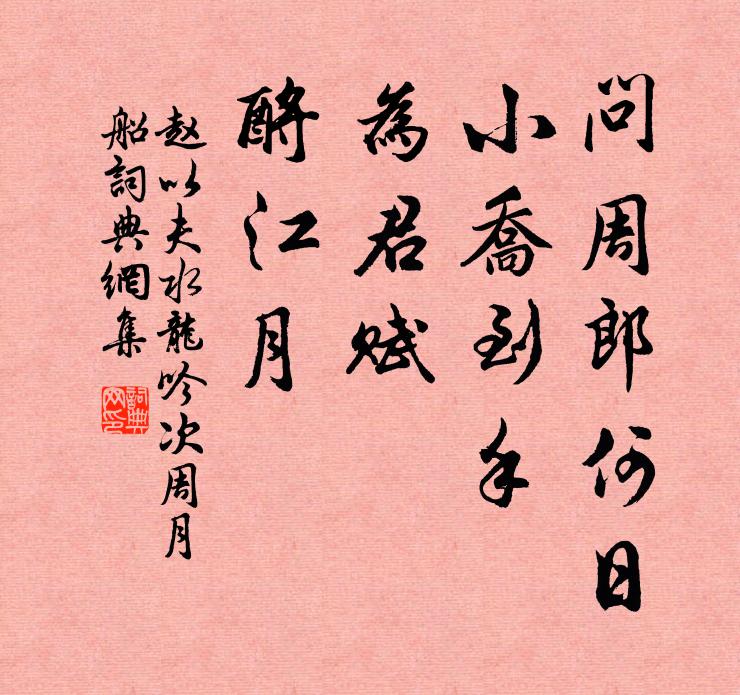 问周郎何日
小喬到手
為君赋
酹江月
赵以夫水龍吟次周月
船詞典網集
詞典
网印